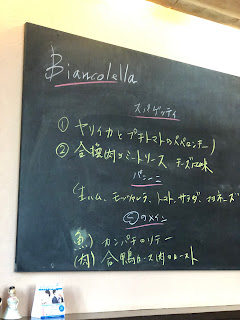 Biancolella
スパゲッティ
① ヤリイカとプチトマトのペペロンチーノ
② 合挽肉のミートソース チーズ風味
パニーニ
(生ハム、モッツァレラ、トマト、サラダ、
のメイン
魚) カンパチのソテー
(肉) 合鴨ロース肉のロースト